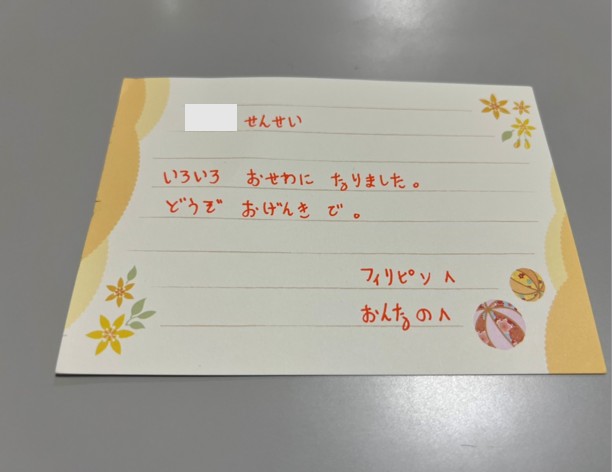 せんせい
いろいろ おせわに なりました。
どうぞ おげんき で。
フィリピン人
おんなの人